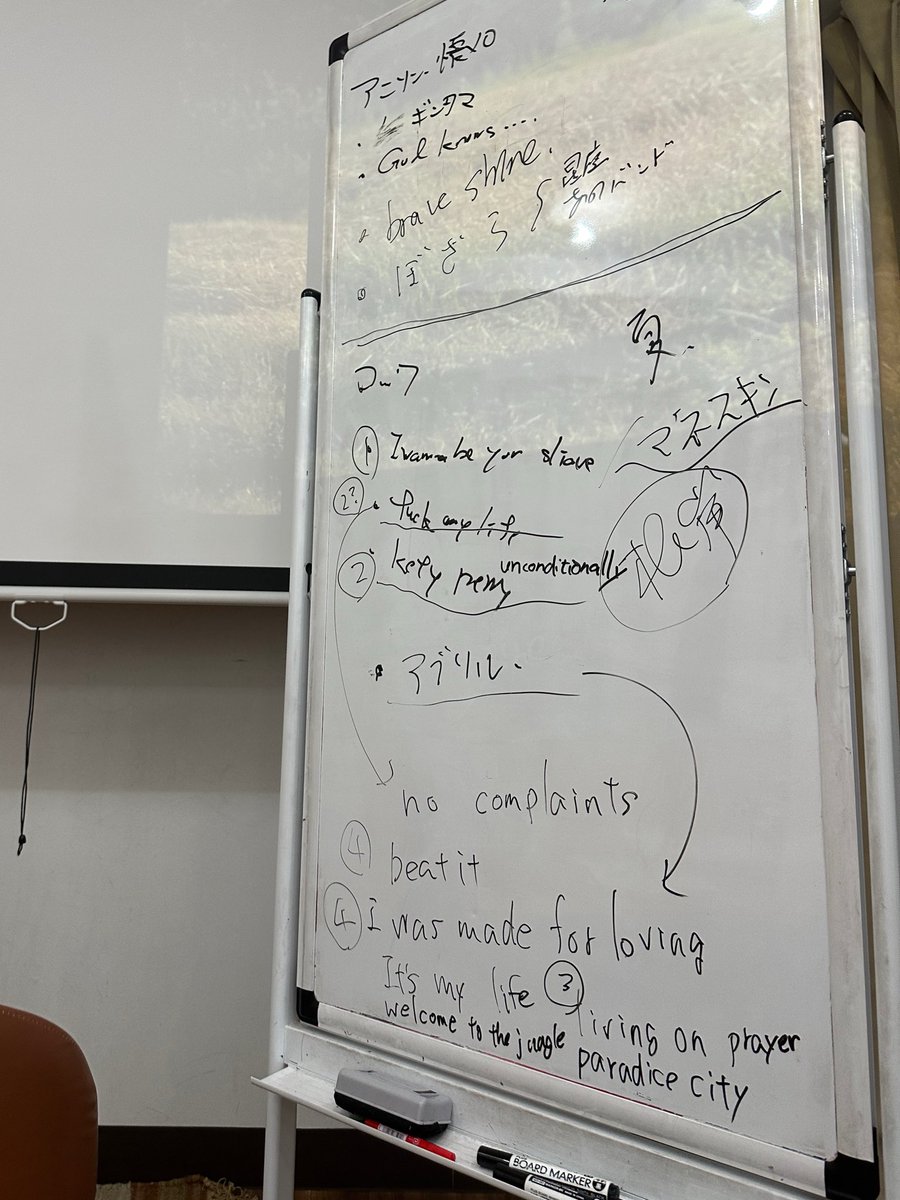 アニソン
・ ギンタマ
・ God knows....
・ brave shine.
・ ぼざろ
夏.
ロック
① I wanna be your slave
マネスキン
②? ・ fuck my life
② kety perry unconditionally
・ アブリル
no complaints
④ beat it
④ I was made for loving
It's my life ③ living on prayer
welcome to the jungle paradice city
BOARD MARKER